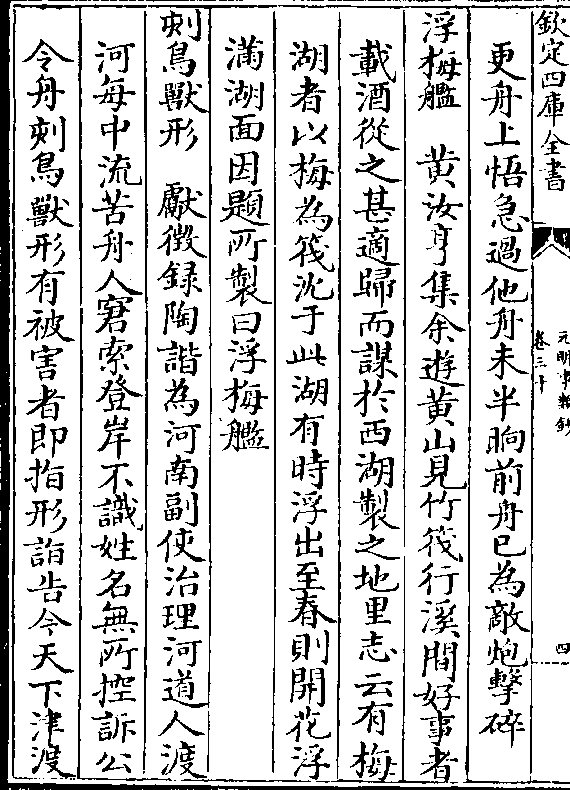 欽定四庫全書
元明事類鈔
卷三十
四
更舟上悟急過他舟未半晌前舟已為敵炮擊碎
浮梅檻　黄汝亨集余遊黄山見竹筏行溪間好事者
載酒從之甚適歸而謀於西湖製之地里志云有梅
湖者以梅為筏沈于此湖有時浮出至春則開花浮
滿湖面因題所製曰浮梅檻
刺鳥獸形　獻徴録陶諧為河南副使治理河道人渡
河每中流苦舟人窘索登岸不識姓名無所控訴公
令舟刺鳥獸形有被害者即指形詣告今天下津渡